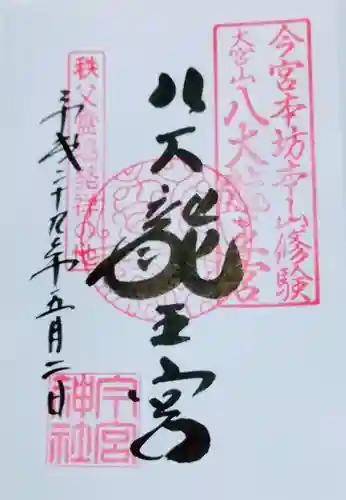 今宮本坊本山修験
大宮山八大龍王宮
八大龍王宮
秩父霊場発祥の地
平成二十九年五月二日
今宮神社